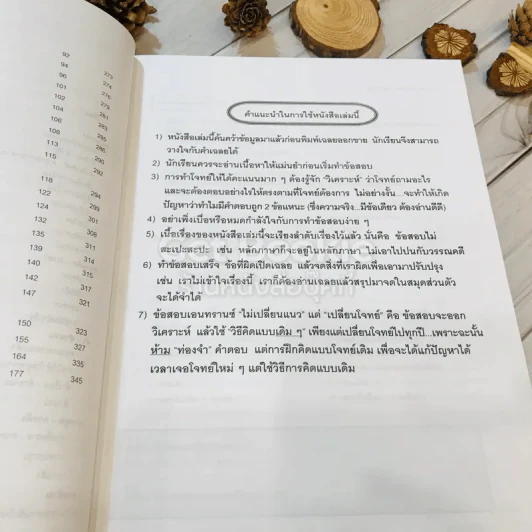 92
94
96
101
102
104
106
108
113
115
118
122
124
132
135
139
140
142
147
150
155
164
177
273
274
276
279
281
283
285
286
290
292
294
299
304
307
309
314
316
317
321
323
327
334
345
คำแนะนำในการใช้หนังสือเล่มนี้
1) หนังสือเล่มนี้ค้นคว้าข้อมูลมาแล้วก่อนพิมพ์เฉลยออกขาย นักเรียนจึงสามารถ
วางใจกับคำเฉลยได้
2) นักเรียนควรจะอ่านเนื้อหาให้แม่นยำก่อนเริ่มทำข้อสอบ
3) การทำโจทย์ให้ได้คะแนนมาก ๆ ต้องรู้จัก "วิเคราะห์" ว่าโจทย์ถามอะไร
และจะต้องตอบอย่างไรให้ตรงตามที่โจทย์ต้องการ ไม่อย่างงั้น...จะทำให้เกิด
ปัญหาว่าทำไมมีคำตอบถูก 2 ข้อแหนะ (ซึ่งความจริง..มีข้อเดียว ต้องอ่านดีดี)
4) อย่าเพิ่งเบื่อหรือหมดกำลังใจกับการทำข้อสอบง่าย ๆ
5) เนื้อเรื่องของหนังสือเล่มนี้จะเรียงลำดับเรื่องไว้แล้ว นั่นคือ ข้อสอบไม่
สะเปะสะปะ เช่น หลักภาษาก็จะอยู่ในหลักภาษา ไม่เอาไปปนกับวรรณคดี
6) ทำข้อสอบเสร็จ ข้อที่ผิดเปิดเฉลย แล้วจดสิ่งที่เราผิดเพื่อเอามาปรับปรุง
เช่น เราไม่เข้าใจเรื่องนี้ เราก็ต้องอ่านเฉลยแล้วสรุปมาจดในสมุดส่วนตัว
จะได้จำได้
7) ข้อสอบเอนทรานซ์ "ไม่เปลี่ยนแนว" แต่ "เปลี่ยนโจทย์" คือ ข้อสอบจะออก
วิเคราะห์ แล้วใช้ "วิธีคิดแบบเดิม ๆ" เพียงแต่เปลี่ยนโจทย์ไปทุกปี...เพราะฉะนั้น
ห้าม "ท่องจำ" คำตอบ แต่การฝึกคิดแบบโจทย์เดิม เพื่อจะได้แก้ปัญหาได้
เวลาเจอโจทย์ใหม่ ๆ แต่ใช้วิธีการคิดแบบเดิม